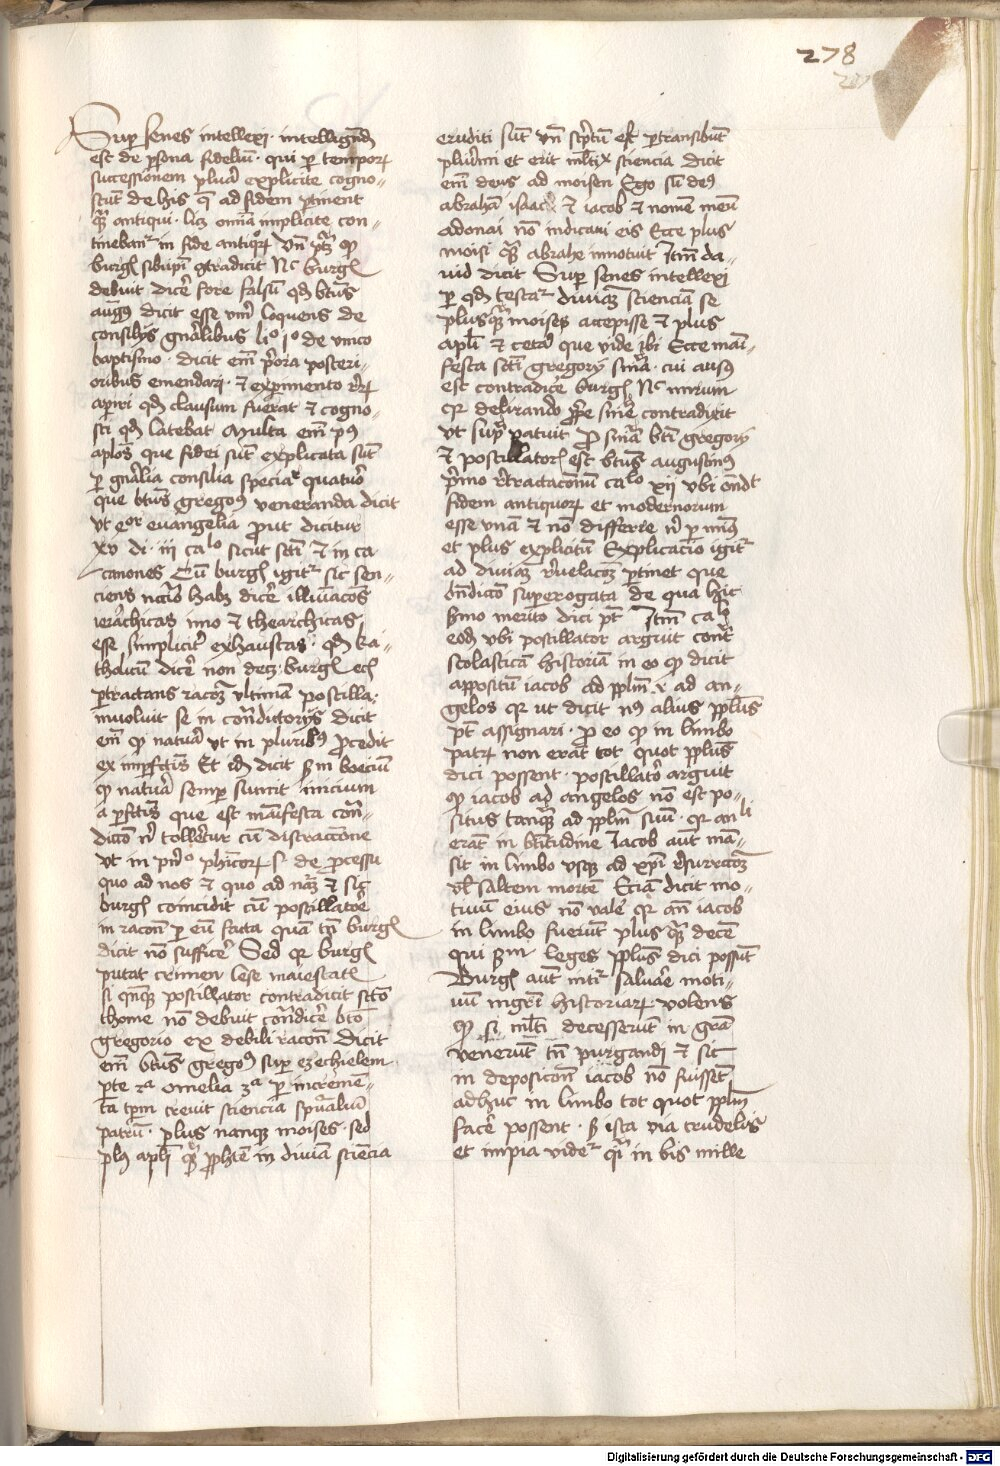 278
Sup senes intellexi · intelligendū
est de psona fideliū · qui p tempor
successionem plura explicite cogno-
scūt de his q ad fidem ptinent
qm antiqui · licꝫ omīa implicite con-
tinebant in fide antiqor Vn ptꝫ qp
burgꝭ sibiipi gtradicit Nc burgꝭ
debuit dice fore falsū qd btus
augꝯ dicit esse verū loquens de
consilijs gnalibus lio io de vnico
baptismo · dicit em pora posteri-
oribus emendari · et expimento rer
apiri qd clausum fuerat et cogno-
sci qd latebat Multa em pꝯ
aplos que fidei sūt explicata sūt
p gnalia consilia specialr quatuor
que btus gregoꝯ veneranda dicit
vt eor euangelia put dicitur
xv di · iii calo sicut scti et in ca
canones Cū burgꝭ igitr sic sen-
ciens nccio habꝫ dice illuiacoes
ierarchicas imo et thearchicas
esse simplicitr exhaustas · qd ka-
tholicū dice non decꝫ · burgꝭ eciā
ptractans racoeꝫ vltimā postilla ·
inuoluit se in condictorijs dicit
em qp natura vt in pluribꝯ pcedit
ex impfectis Et idē dicit scdm boeciū
qp natura semp sumit inicium
a pfectis que est manifesta con-
diccio ni tolleretur cū distinccione
vt in pno phicor s · de pcessu
quo ad nos et quo ad naꝫ et sic
burgꝭ coincidit cū postillatore
in racone p eū facta quā tn burgꝭ
dicit nō suffice Sed qr burgꝭ
putat crimen lese maiestatꝭ
si qncqꝫ postillator contradicit scto
thome nō debuit condice bto
gregorio ex debili racone Dicit
em btus gregoꝯ sup ezechielem
pte 2a omelia 3a p increme-
ta tpm creuit sciencia spualiū
patrū · plus nanqꝫ moises · sed
plꝯ apli qm pphete in diuia sciēcia
eruditi sūt vn scriptū est ptransibūt
plurimi et erit mltix sciencia dicit
em deus ad moisen Ego sū deꝯ
abrahā isaac et iacob et nomē meū
adonai nō indicaui eis Ecce plus
moisi qm abrahe innotuit Itm da-
uid dicit Sup senes intellexi
p qd testatr diuiaꝫ scienciā se
plusqm moises accepisse et plus
apli et cetera que vide ibi Ecce mani-
festa scti gregorij sīnia · cui ausꝯ
est contradice burgꝭ Nc mirum
qr delirando pprie sinie contradixit
vt supra patuit Pro sinia bti gregorij
et postillatorꝭ est btus augustinꝯ
primo retractaconū calo xij vbi ondit
fidem antiquor et modernorum
esse vnā et nō differre ni p minꝯ
et plus explicitū Explicacio igitr
ad diuiaꝫ reuelacoeꝫ ptinet que
ondicio superogata de qua hic
smo merito dici pt Itm calo
eodē vbi postillator arguit contra
scolasticā historiā in eo qp dicit
appositū iacob ad pplm i · ad an-
gelos qr ut dicit nꝯ alius pplus
pt assignari · p eo qp in limbo
patr non erāt tot quot pplus
dici possent · postillator arguit
qp iacob ad angelos nō est po-
situs tanqꝫ ad pplm suū · qr an li
erāt in btitudine Iacob aut man-
sit in limbo vsqꝫ ad xpi resurrecoeꝫ
vl saltem mortē Eciā dicit mo-
tiuū eius nō vale qr an iacob
in limbo fuerūt plus qm decē
qui scdm leges pplus dici possūt
Burgꝭ aut nititr saluare moti-
uū mgri historiar · volens
qp si mlti decesserūt in gra
venerūt tn purgandi et sic
in deposicoe iacob nō fuissēt
adhuc in limbo tot quot pplm
face possent · sꝫ ista via crudelis
et impia videtr qsi in bis mille
Digitalisierung gefördert durch die Deutsche Forschungsgemeinschaft - DFG